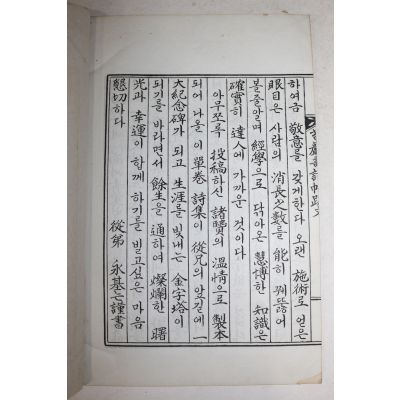 하여금 敬意를 갖게한다 오랜 施術로 얻은
眼目은 사람의 消長之數를 能히 꿰뚫어
볼줄알며 經學으로 닦아온 慧博한 知識은
確實히 達人에 가까운 것이다
아무쪼록 投稿하신 諸賢의 溫情으로 製本
되어 나올 이 單卷 詩集이 從兄의 앞길에 一
大紀念碑가 되고 生涯를 빛내는 金字塔이
되기를 바라면서 餘生을 通하여 燦爛한 曙
光과 幸運이 함께 하기를 빌고싶은 마음
懇切하다
從弟 永基 謹書